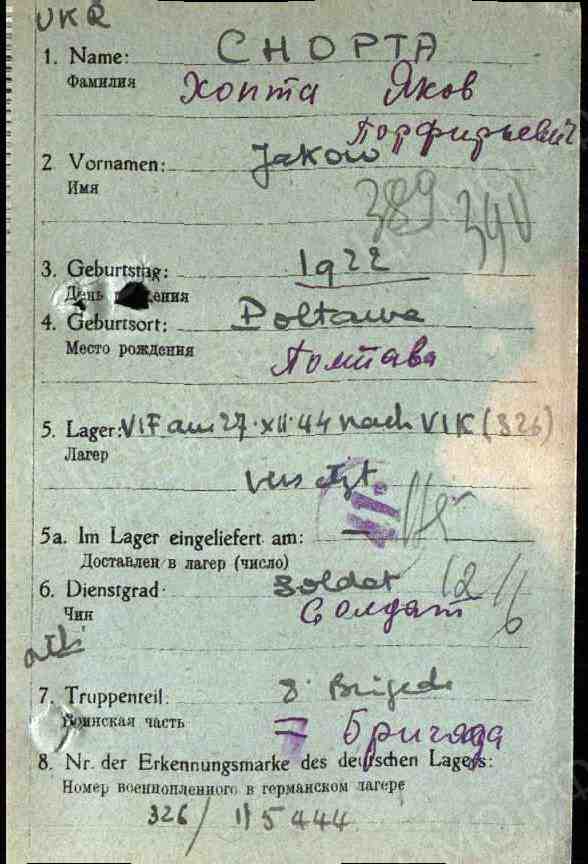 UKR
1. Name: CHOPTA
Фамилия Хопта Яков
Порфирьевич
2 Vornamen: Jakow
Имя
389 340
3. Geburtstag: 1922
День рождения
4. Geburtsort: Poltawa
Место рождения Полтава
5. Lager: VIF am 27.XII.44 nach VIK (326)
Лагер
versetzt
5a. Im Lager eingeliefert am: —
Доставлен в лагер (число)
6. Dienstgrad: Soldat
Чин Солдат
7. Truppenteil: 8. Brigade
Воинская часть = Бригада
8. Nr. der Erkennungsmarke des deutschen Lagers:
Номер военнопленного в германском лагере
326/ 115444